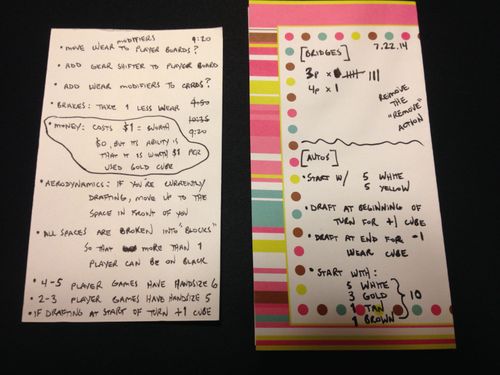 MODIFIERS 9:20
• MOVE WEAR TO PLAYER BOARDS?
• ADD GEAR SHIFTER TO PLAYER BOARD
• ADD WEAR MODIFIERS TO CARDS?
• BRAKES: TAKE 1 LESS WEAR 4:50
10:35
• MONEY: COSTS $1 = WORTH 9:20
$0, BUT ITS ABILITY IS
THAT IT IS WORTH $1 PER
USED GOLD CUBE
• AERODYNAMICS: IF YOU'RE CURRENTLY
DRAFTING, MOVE UP TO THE
SPACE IN FRONT OF YOU
• ALL SPACES ARE BROKEN INTO "BLOCKS"
SO THAT MORE THAN 1
PLAYER CAN BE ON BLACK
• 4-5 PLAYER GAMES HAVE HANDSIZE 6
• 2-3 PLAYER GAMES HAVE HANDSIZE 5
• IF DRAFTING AT START OF TURN +1 CUBE
[BRIDGES] 7.22.14
3P ×
4P × 1
REMOVE
THE
"REMOVE"
ACTION
[AUTOS]
• START W/ 5 WHITE
5 YELLOW
• DRAFT AT BEGINNING OF
TURN FOR +1 CUBE
• DRAFT AT END FOR -1
WEAR CUBE
• START WITH:
5 WHITE
3 GOLD
1 TAN
1 BROWN
10